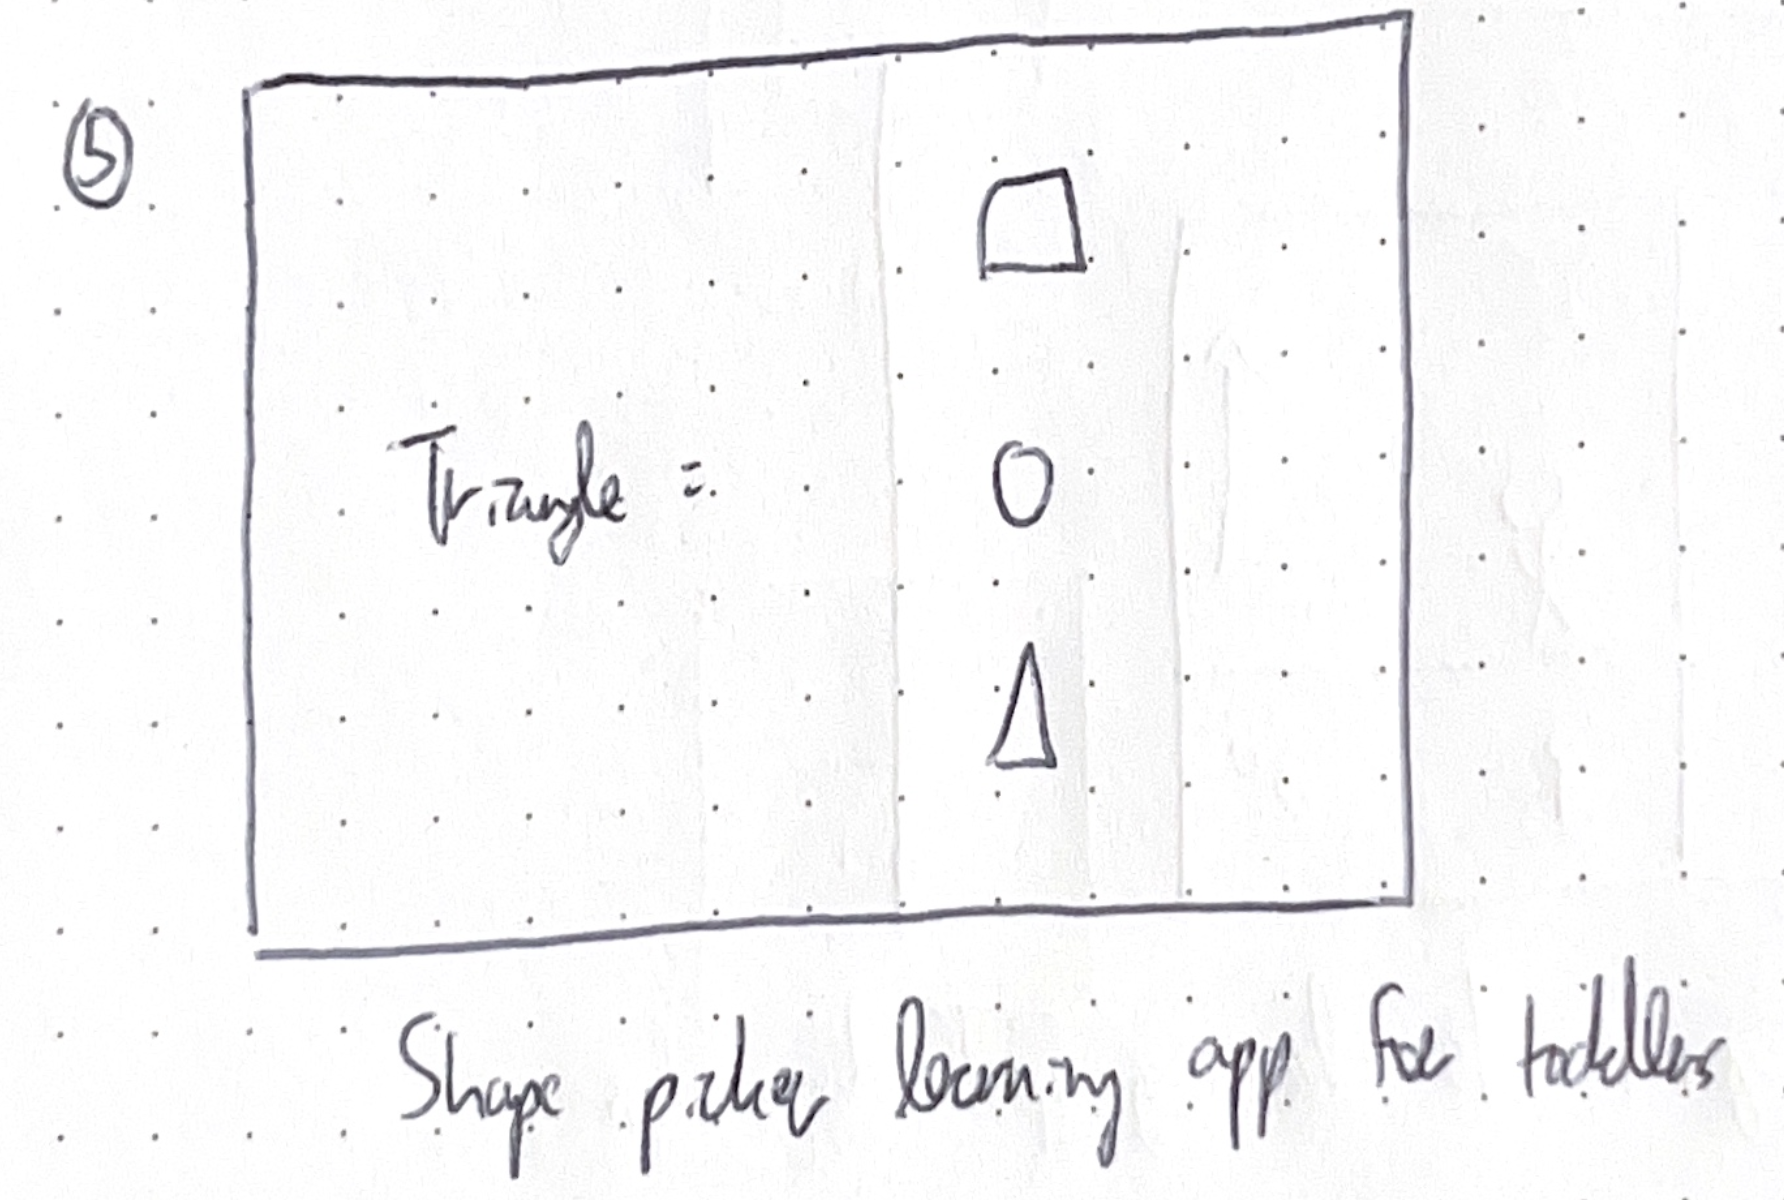 5
Triangle =
Shape picker learning app for toddlers